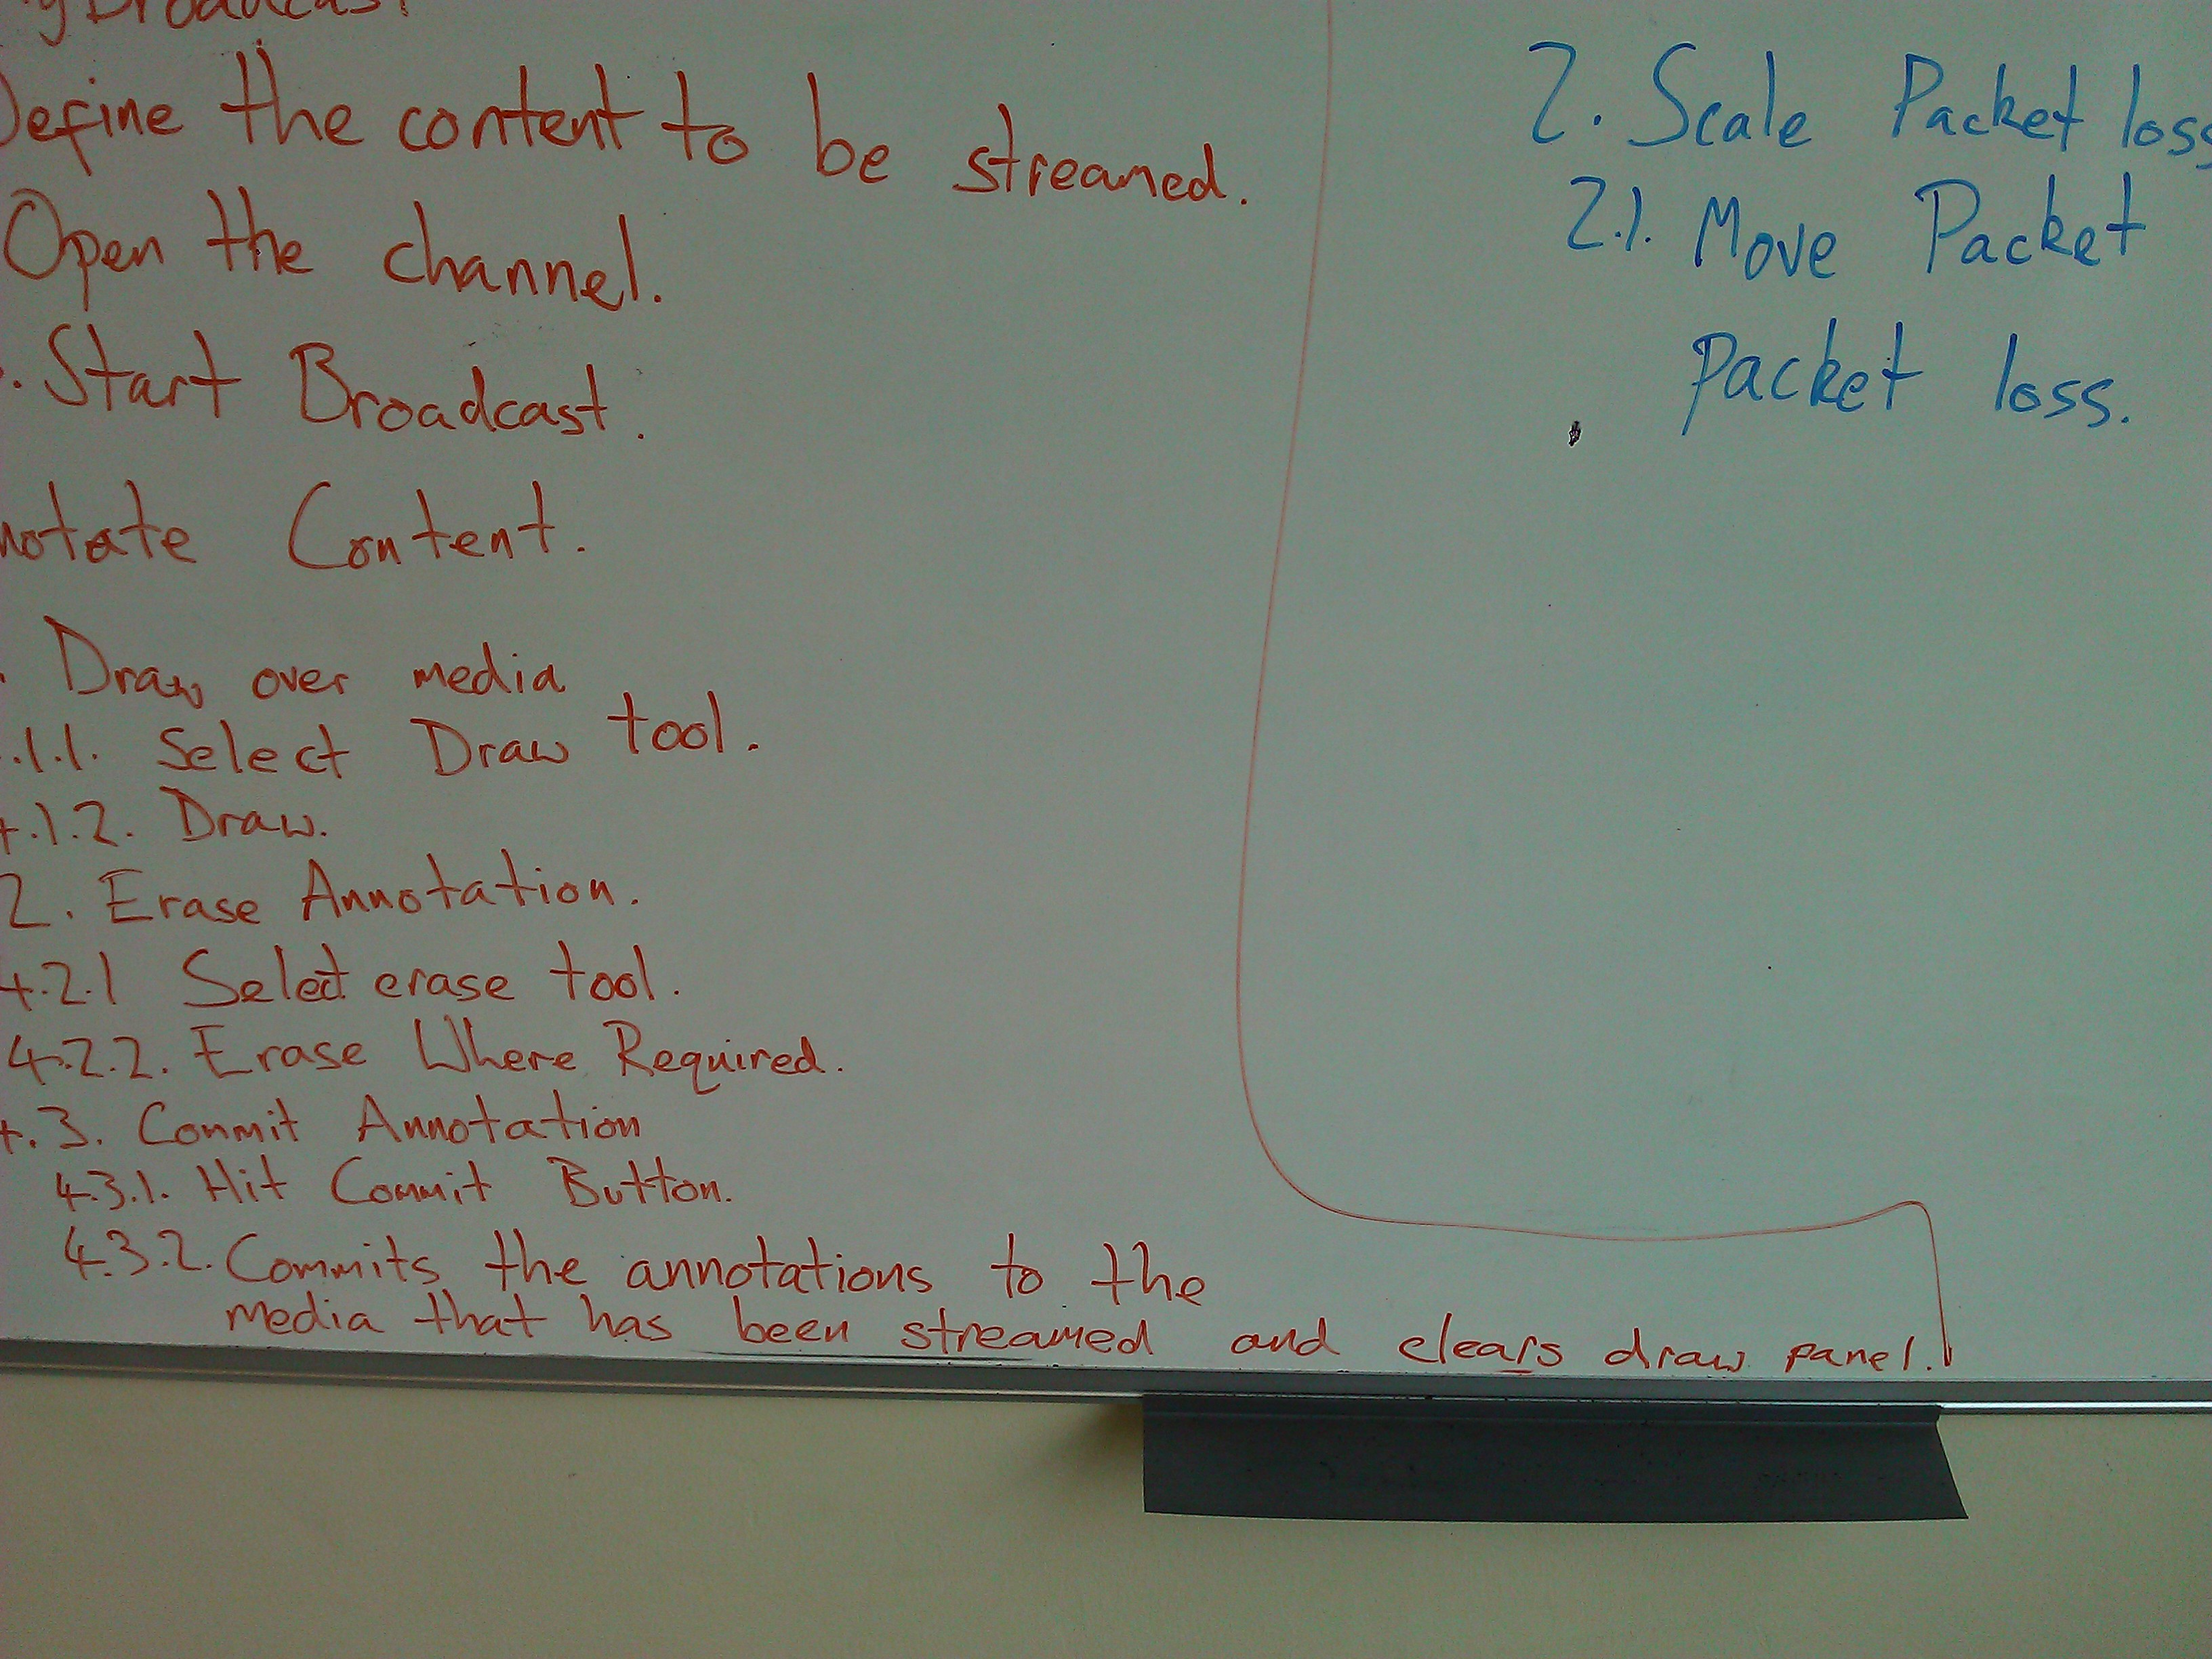 Define the content to be streamed.
Open the channel.
. Start Broadcast.
notate Content.
. Draw over media
.1.1. Select Draw tool.
4.1.2. Draw.
2. Erase Annotation.
4.2.1 Select erase tool.
4.2.2. Erase Where Required.
4.3. Commit Annotation
4.3.1. Hit Commit Button.
4.3.2. Commits the annotations to the
media that has been streamed and clears draw panel.
2. Scale Packet loss
2.1. Move Packet
Packet loss.